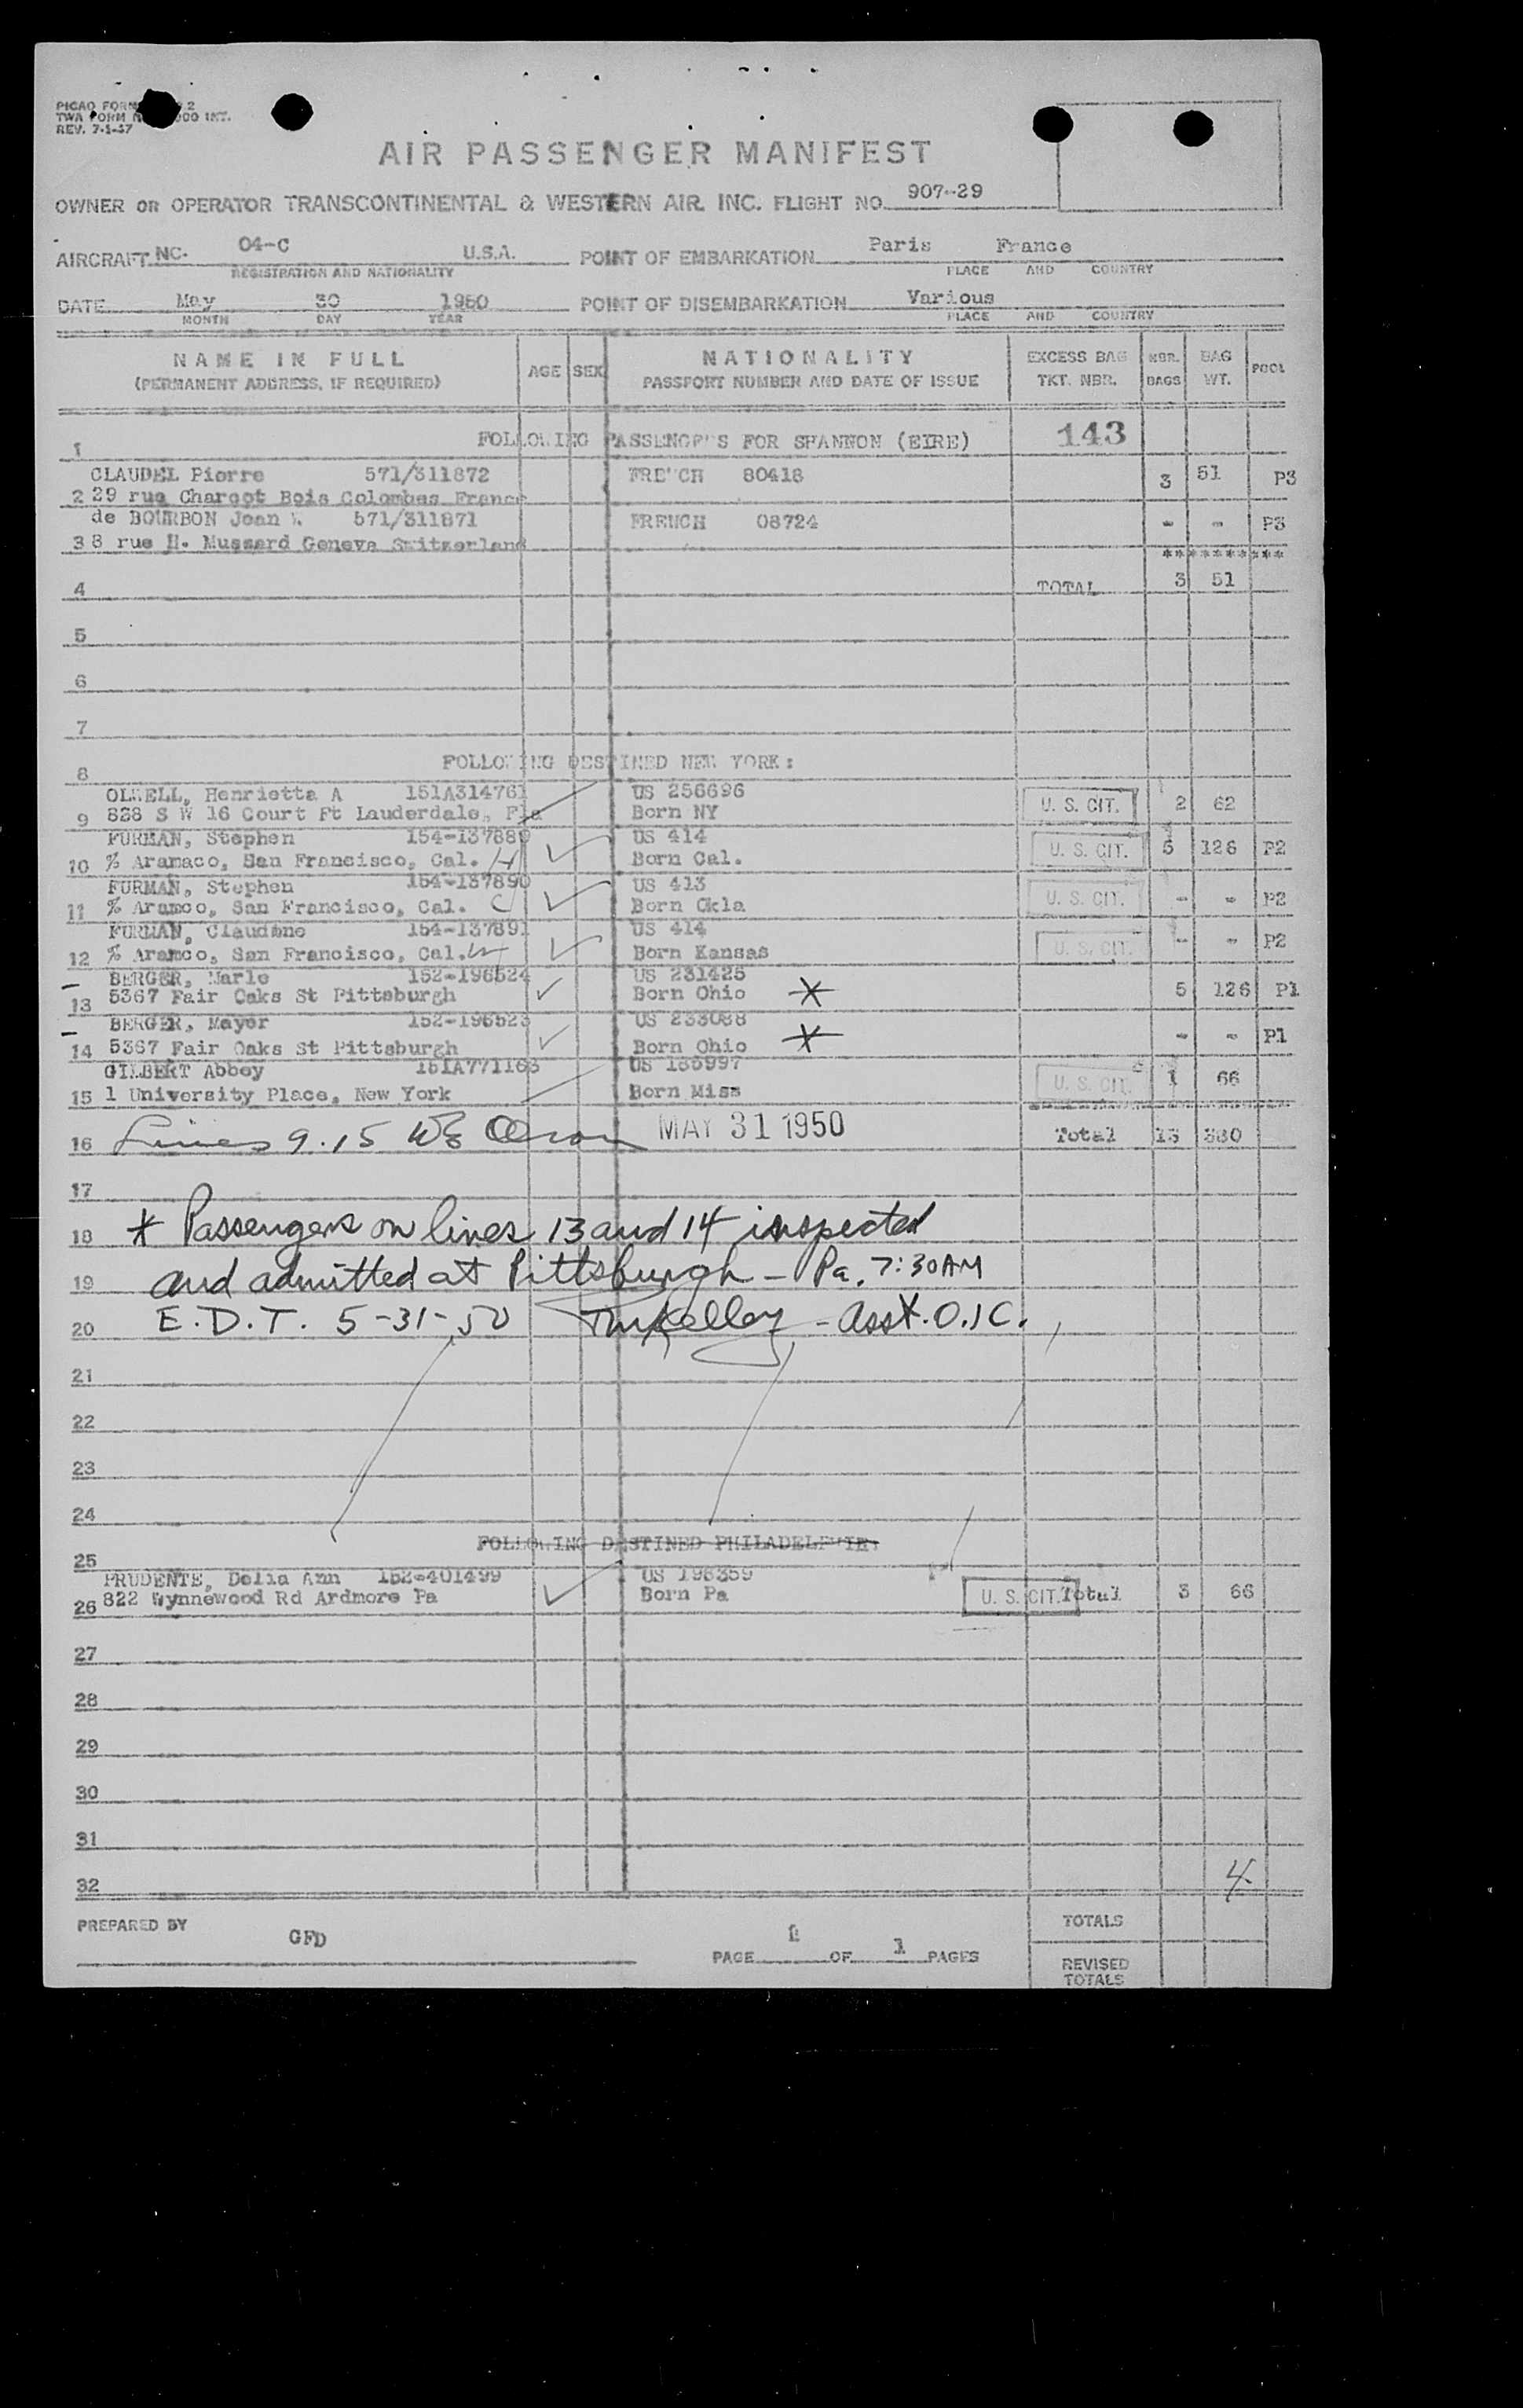 PICAO FORM 2
TWA FORM 000 INT.
REV. 7-1-47
AIR PASSENGER MANIFEST
OWNER OR OPERATOR TRANSCONTINENTAL & WESTERN AIR. INC. FLIGHT NO. 907-29
AIRCRAFT NC. 04-C U.S.A. POINT OF EMBARKATION Paris France
REGISTRATION AND NATIONALITY PLACE AND COUNTRY
DATE May 30 1950 POINT OF DISEMBARKATION Various
MONTH DAY YEAR PLACE AND COUNTRY
NAME IN FULL AGE SEX NATIONALITY EXCESS BAG NBR. BAG POOL
(PERMANENT ADDRESS, IF REQUIRED) PASSPORT NUMBER AND DATE OF ISSUE TKT. NBR. BAGS WT.
1 FOLLOWING PASSENGERS FOR SHANNON (EIRE) 143
CLAUDEL Pierre 571/311872 FRENCH 80418 3 51 P3
2 29 rue Chargot Bois Colombes France
de BOURBON Jean 571/311871 FRENCH 08724 - - P3
3 8 rue H. Mussard Geneva Switzerland
**********
4 TOTAL 3 51
5
6
7
8 FOLLOWING DESTINED NEW YORK:
Henrietta A 151A314761 US 256696
9 828 S W 16 Court Ft Lauderdale, Fla Born NY U. S. CIT. 2 62
FURMAN, Stephen 154-137889 US 414
10 % Aramaco, San Francisco, Cal. H Born Cal. U. S. CIT. 5 126 P2
FURMAN, Stephen 154-137890 US 413
11 % Aramco, San Francisco, Cal. C Born Okla U. S. CIT. - - P2
FURMAN, Claudine 154-137891 US 414
12 % Aramco, San Francisco, Cal. W Born Kansas U. S. CIT. - - P2
BERGER, Marle 152-196524 US 231425
13 5367 Fair Oaks St Pittsburgh Born Ohio * 5 126 P1
BERGER, Mayer 152-196523 US 233088
14 5367 Fair Oaks St Pittsburgh Born Ohio * - - P1
GILBERT Abbey 151A771163 US 186997
15 1 University Place, New York Born Miss U. S. CIT. 1 66
16 Lines 9-15 MAY 31 1950 Total 13 380
17
18 * Passengers on lines 13 and 14 inspected
19 and admitted at Pittsburgh - Pa. 7:30AM
20 E.D.T. 5-31-50 Kelley - Asst. O.I.C.
21
22
23
24
25 FOLLOWING DESTINED PHILADELPHIA:
PRUDENTE, Delia Ann 152-401499 US 198359
26 822 Wynnewood Rd Ardmore Pa Born Pa U. S. CIT. Total 3 66
27
28
29
30
31
32 4
PREPARED BY GFD PAGE 1 OF 1 PAGES TOTALS
REVISED
TOTALS